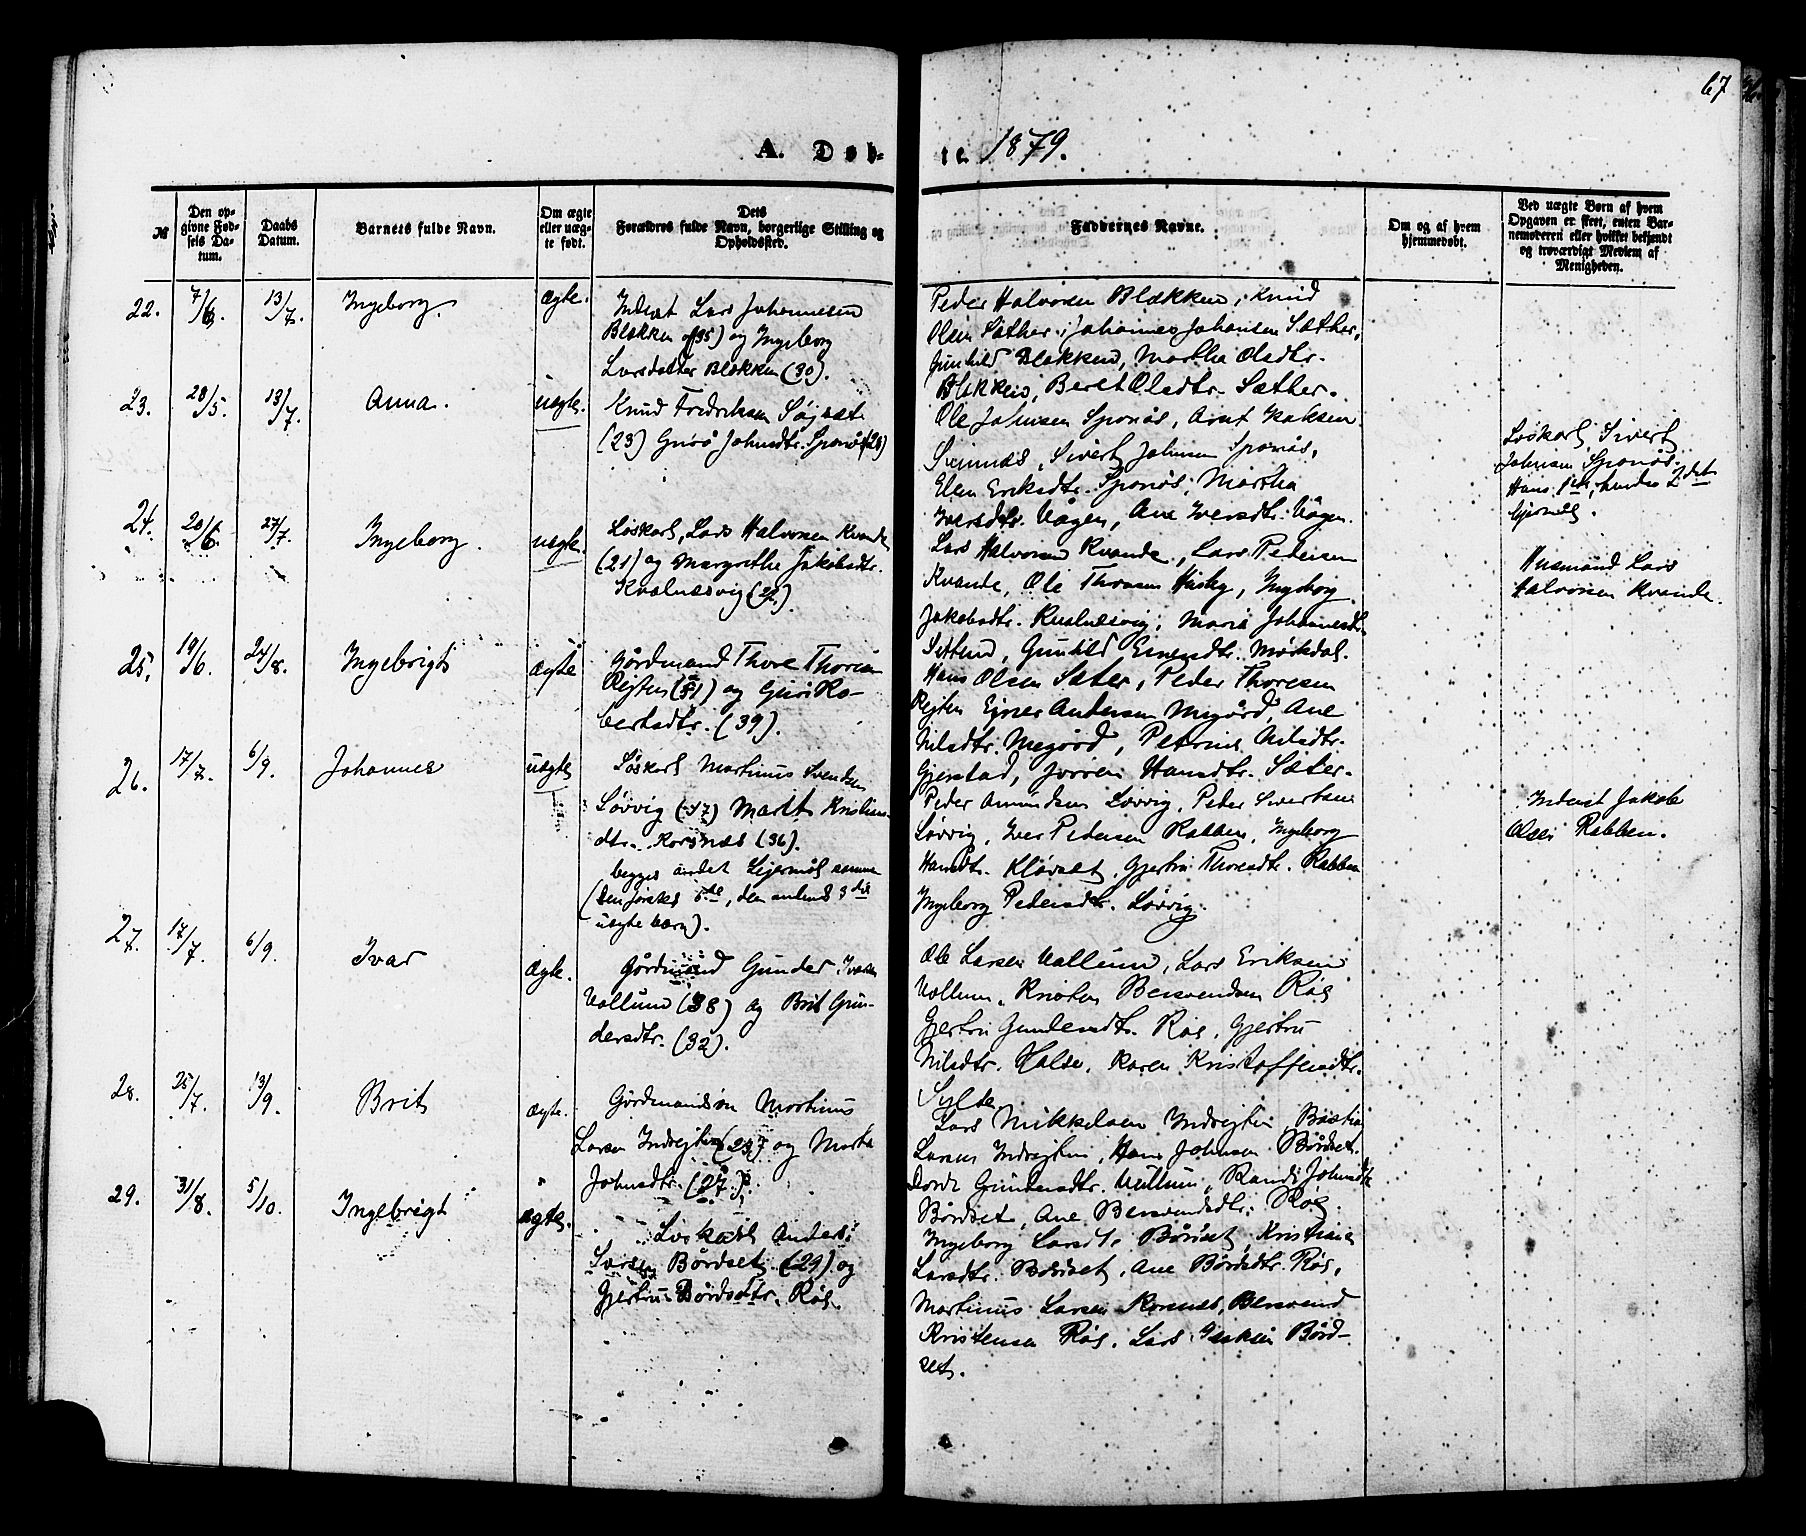 67
A. Døb-
te. 1879.
№
Den op-
givne Fød-
sels Da-
tum.
Daabs
Datum.
Barnets fulde Navn.
Om ægte
eller uæg-
te født.
Dets
Forældres fulde Navn, borgerlige Stilling og
Opholdssted.
Faddernes Navne.
Om og af hvem
hjemmedøbt.
Ved uægte Børn af hvem
Opgaven er skeet, enten Bar-
nemoderen eller hvilket bekjendt
og troværdigt Medlem af
Menigheden.
22. 7/6. 13/7. Ingeborg. ægte.
Inderst Lars Johannesen
Blækken (35) og Ingeborg
Larsdatter Blækken (30).
Peder Halvorsen Blækken, Knud
Olsen Sæther, Johannes Johansen Sæther,
Gunhild Blækken, Martha Olsdtr.
Blækken, Beret Olsdtr. Sæther.
23. 28/5. 13/7. Anna. uægte.
Knud Fredriksen Søgset
(23) Guroe Johnsdtr. Sponøs (28)
Ole Johnsen Sponøs, Arnt Isaksen
Svinnæs, Sivert Johnsen Sponøs,
Elen Eriksdtr. Sponøs, Martha
Iversdtr. Vågen, Ane Iversdtr. Vågen.
Løskarl Sivert
Johnsen Sponøs.
Hans 1ste, hendes 2det
Lejermål.
24. 20/6. 27/7. Ingeborg. uægte.
Løskarl, Lars Halvorsen Kvande
(21) og Margrethe Jakobsdtr.
Kvalnæsvig (22.)
Lars Halvorsen Kvande, Lars Pedersen
Kvande, Ole Thoresen Husby, Ingeborg
Jakobsdtr. Kvalnæsvig, Marie Johannesdtr.
Settem, Gunhild Einersdtr. Mørkdal.
Husmand Lars
Halvorsen Kvande.
25. 19/6. 24/8. Ingebrigt ægte
Gårdmand Thore Thoresen
Rejten (51) og Guri Ro-
bertsdtr. (39).
Hans Olsen Sæter, Peder Thoresen
Rejten Ejner Andersen Megård, Ane
Nilsdtr. Megård, Petrine Nilsdtr.
Gjerstad, Jørren Hansdtr. Sæter.
26. 17/7. 6/9. Johannes uægte
Løskarl Martinus Svendsen
Løvvig (37) Marit Kristians-
dtr. Korsnæs (36).
begges andet Lejermål samme
(den førstes 5te, den andens 3die
uægte barn).
Peder Amundsen Løvvig, Peder Sivertsen
Løvvig, Iver Pedersen Rabben, Ingeborg
Hansdtr. Kløvset, Gjertru Thoresdtr. Rabben
Ingeborg Pedersdtr. Løvvig.
Inderst Jakob
Olsen Rabben.
27. 17/7. 6/9. Ivar ægte.
Gårdmand Gunder Iversen
Vullum (38) og Brit Gun-
dersdtr. (32).
Ole Larsen Vullum, Lars Eriksen
Vollum, Kristen Bersvendsen Røs
Gjertru Gundersdtr. Røs, Gjertru
Nilsdtr. Halse, Karen Kristoffersdtr.
Sylte
28. 25/7. 13/9. Brit ægte.
Gårdmandsøn Martinus
Larsen Indrejten (23) og Marta
Johnsdtr. (27).
Lars Mikkelsen Indrejten, Bastian
Larsen Indrejten, Hans Johnsen Børdset.
Dordi Gundersdtr. Vullum, Randi Johnsdtr
Børdset, Ane Bersvendsdtr. Røs.
29. 31/8. 5/10. Ingebrigt ægte.
Løskarl Anders
Larsen Børdset, (29) og
Gjertru Bårdsdtr. Røs.
Ingeborg Larsdtr. Børdset, Kristiane
Larsdtr. Børdset, Ane Bårdsdtr. Røs,
Martinus Larsen Korsnes, Bersvend
Kristensen Røs, Lars Bård-
set.